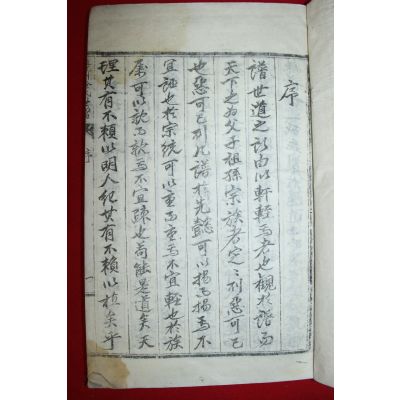 序
譜世道之所由以軒輊焉者也觀於譜而
天下之為父子祖孫宗族者定定則惡可已
也惡可已則凡譜於先懿可以揚而揚焉不
宜誣也於宗統可以重而重焉不宜輕也於族
屬可以敦而敦焉不宜疎也苟能是道矣天
理其有不賴以明人紀其有不賴以植矣乎
序
一